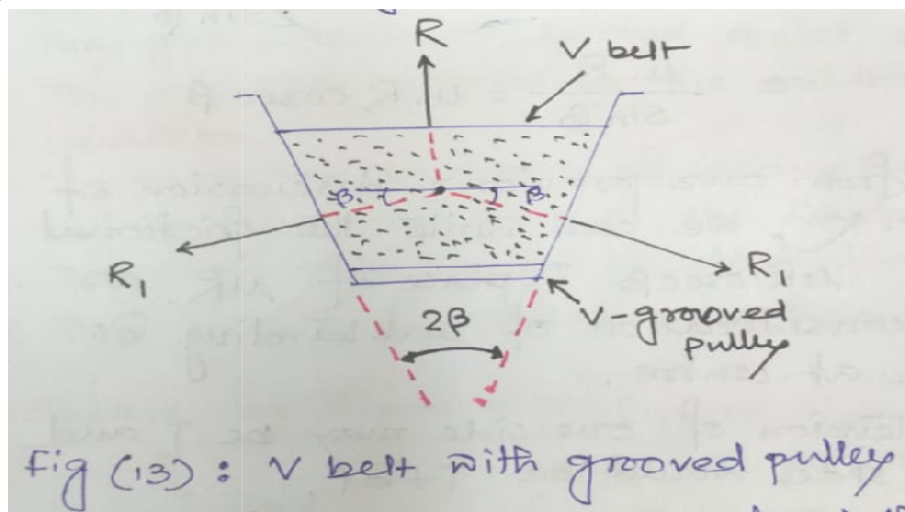 R
V belt
β
β
R₁
R₁
2β
V-grooved
pulley
Fig (13): V belt with grooved pulley